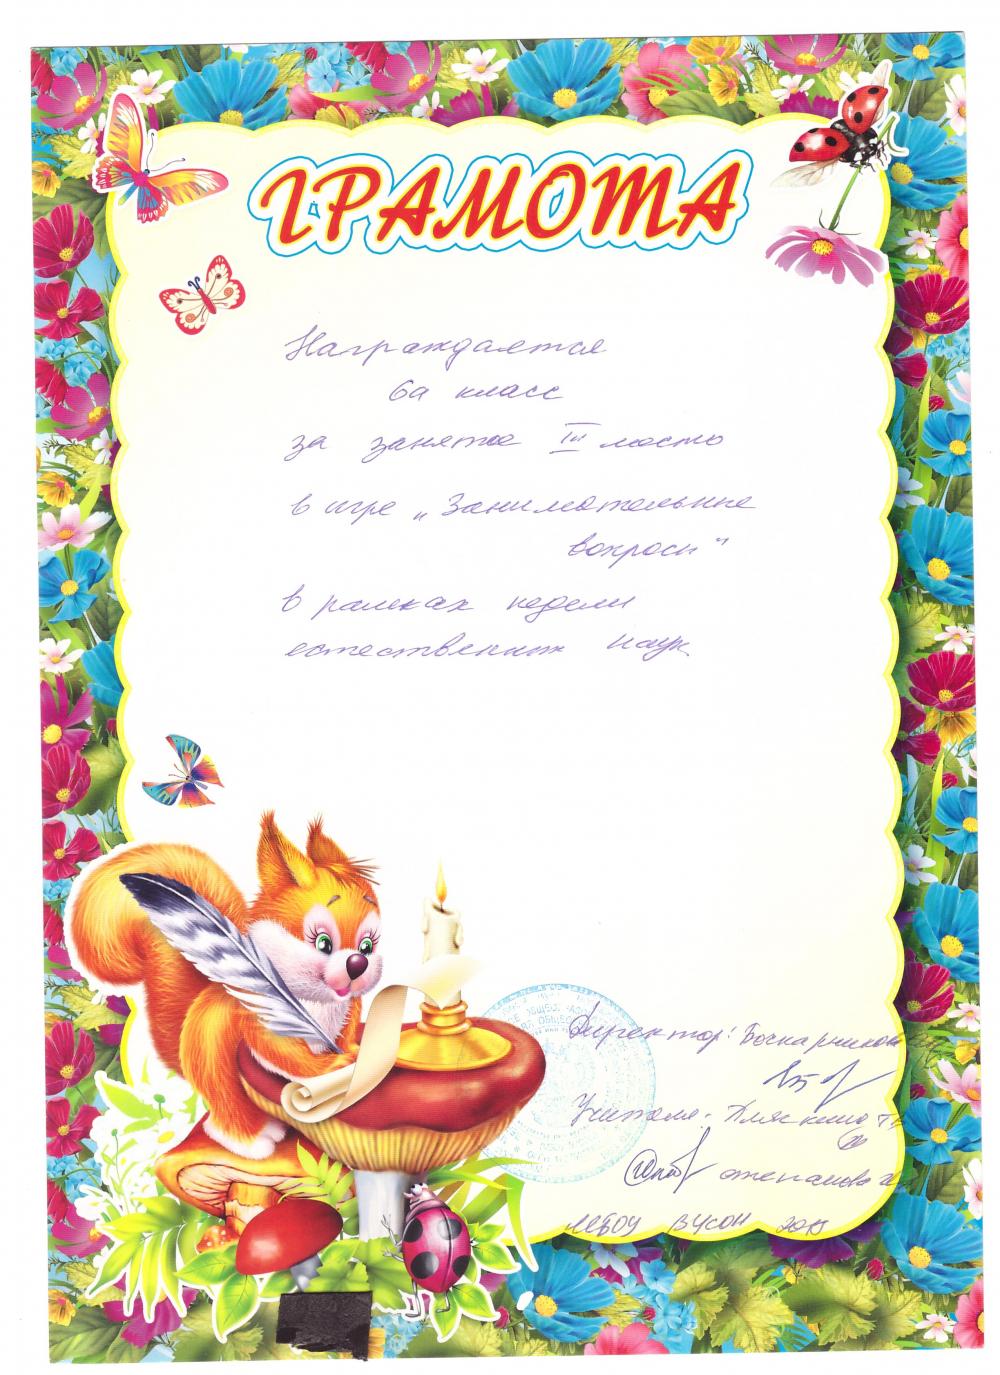 ГРАМОТА
Награждается
6а класс
за занятое III место
в игре „Занимательные
вопросы"
в рамках недели
естественных наук
Директор: Бочкарникова
Учителя:
Степанова
МБОУ ВУСОШ